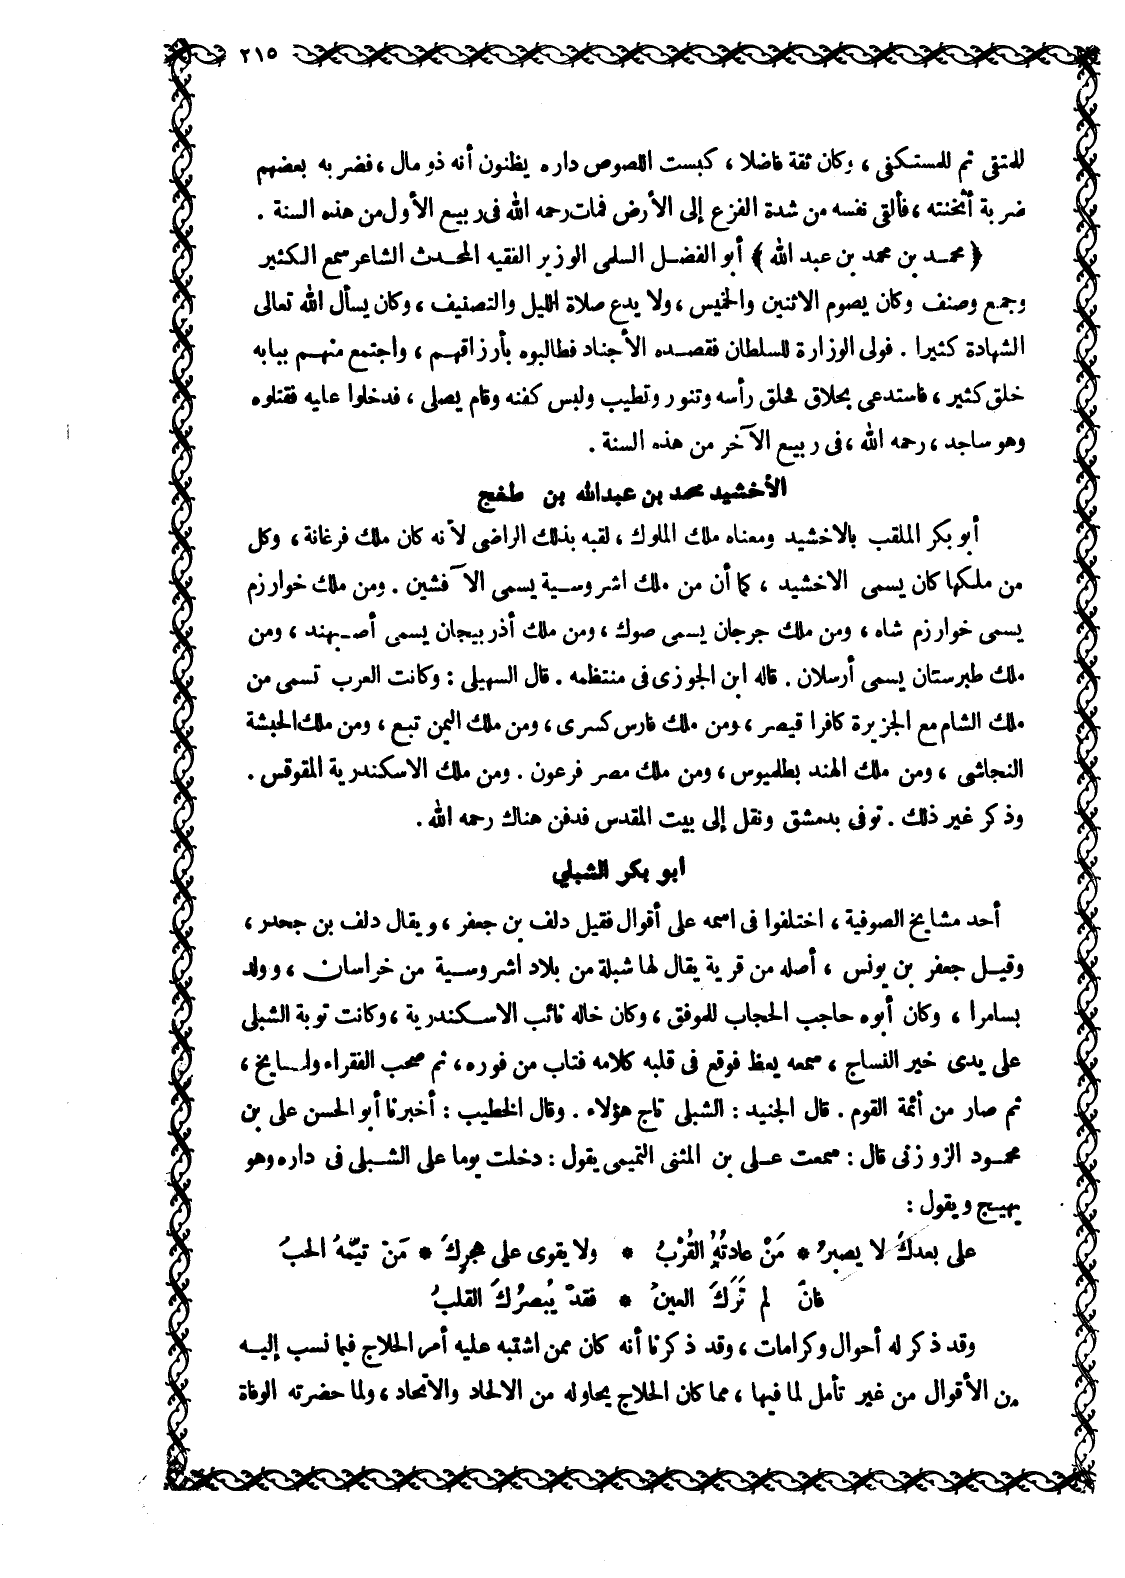 ٢١٥
للمتقى ثم للمستكفى ، وكان ثقة فاضلا ، كبست اللصوص داره يظنون أنه ذو مال ، فضربه بعضهم
ضربة أثخنته ، فألقى نفسه من شدة الفزع إلى الأرض فمات رحمه الله فى ربيع الأول من هذه السنة .
﴿ محمد بن محمد بن عبد الله ﴾ أبو الفضل السلمى الوزير الفقيه المحدث الشاعر سمع الكثير
وجمع وصنف وكان يصوم الاثنين والخميس ، ولا يدع صلاة الليل والتصنيف ، وكان يسأل الله تعالى
الشهادة كثيرا . فولى الوزارة للسلطان فقصده الأجناد فطالبوه بأرزاقهم ، واجتمع منهم ببابه
خلق كثير ، فاستدعى بحلاق فحلق رأسه وتنور وتطيب ولبس كفنه وقام يصلى ، فدخلوا عليه فقتلوه
وهو ساجد ، رحمه الله ، فى ربيع الآخر من هذه السنة .
الأخشيد محمد بن عبدالله بن طغج
أبو بكر الملقب بالاخشيد ومعناه ملك الملوك ، لقبه بذلك الراضى لأنه كان ملك فرغانة ، وكل
من ملكها كان يسمى الاخشيد ، كما أن من ملك اشروسية يسمى الآفشين . ومن ملك خوارزم
يسمى خوارزم شاه ، ومن ملك جرجان يسمى صوك ، ومن ملك أذربيجان يسمى أصبهند ، ومن
ملك طبرستان يسمى أرسلان . قاله ابن الجوزى فى منتظمه . قال السهيلى : وكانت العرب تسمى من
ملك الشام مع الجزيرة كافرا قيصر ، ومن ملك فارس كسرى ، ومن ملك اليمن تبع ، ومن ملك الحبشة
النجاشى ، ومن ملك الهند بطلميوس ، ومن ملك مصر فرعون . ومن ملك الاسكندرية المقوقس .
وذكر غير ذلك . توفى بدمشق ونقل إلى بيت المقدس فدفن هناك رحمه الله .
أبو بكر الشبلي
أحد مشايخ الصوفية ، اختلفوا فى اسمه على أقوال فقيل دلف بن جعفر ، ويقال دلف بن جحدر ،
وقيل جعفر بن يونس ، أصله من قرية يقال لها شبلة من بلاد اشروسية من خراسان ، وولد
بسامرا ، وكان أبوه حاجب الحجاب للموفق ، وكان خاله نائب الاسكندرية ، وكانت توبة الشبلى
على يدى خير النساج ، سمعه يعظ فوقع فى قلبه كلامه فتاب من فوره ، ثم صحب الفقراء والمشايخ ،
ثم صار من أئمة القوم . قال الجنيد : الشبلى تاج هؤلاء . وقال الخطيب : أخبرنا أبو الحسن على بن
محمود الزوزنى قال : سمعت على بن المثنى التميمى يقول : دخلت يوما على الشبلى فى داره وهو
يهيج ويقول :
على بعدكَ لا يصبرُ * مَنْ عادتُهُ القُرْبُ * ولا يقوى على هجرِكَ * مَنْ تيّمهُ الحبُ
فانّ لم تَرَكَ العينُ * فقدْ يُبصرُكَ القلبُ
وقد ذكر له أحوال وكرامات ، وقد ذكرنا أنه كان ممن اشتبه عليه أمر الحلاج فيما نسب إليه
من الأقوال من غير تأمل لما فيها ، مما كان الحلاج يحاوله من الالحاد والاتحاد ، ولما حضرته الوفاة